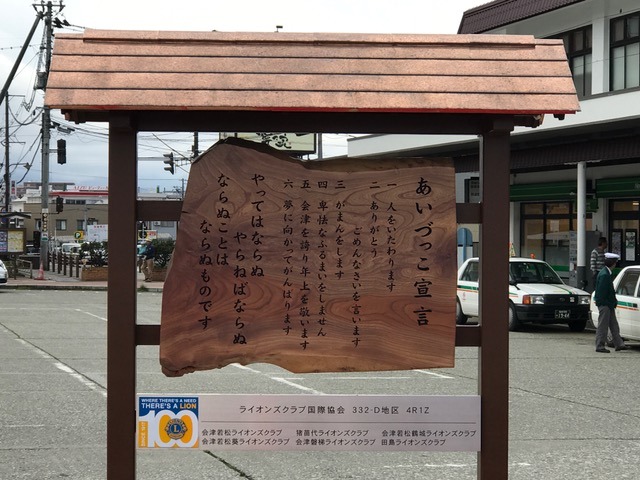 あいづっこ宣言
一 人をいたわります
二 ありがとう
ごめんなさいを言います
三 がまんをします
四 卑怯なふるまいをしません
五 会津を誇り年上を敬います
六 夢に向かってがんばります
やってはならぬ
やらねばならぬ
ならぬことは
ならぬものです
WHERE THERE'S A NEED
THERE'S A LION
100
L
ライオンズクラブ国際協会 332-D地区 4R1Z
会津若松ライオンズクラブ 猪苗代ライオンズクラブ 会津若松鶴城ライオンズクラブ
会津若松葵ライオンズクラブ 会津磐梯ライオンズクラブ 田島ライオンズクラブ